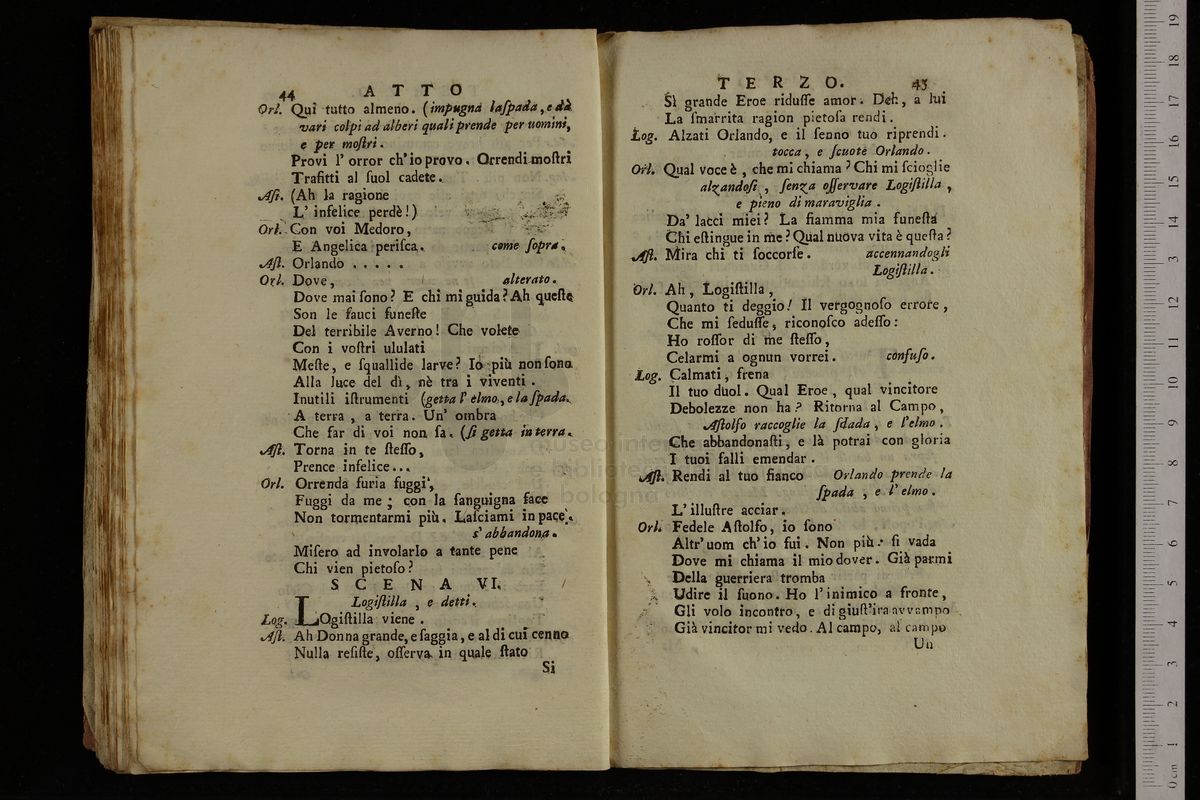 44 ATTO
Orl. Qui tutto almeno. (impugna la ſpada, e dà
vari colpi ad alberi quali prende per uomini,
e per moſtri.
Provi l' orror ch' io provo. Orrendi moſtri
Trafitti al ſuol cadete.
Aſt. (Ah la ragione
L' infelice perdè!)
Orl. Con voi Medoro,
E Angelica periſca. come ſopra.
Aſt. Orlando . . . . .
Orl. Dove, alterato.
Dove mai ſono? E chi mi guida? Ah queſte
Son le fauci funeſte
Del terribile Averno! Che volete
Con i voſtri ululati
Meſte, e ſquallide larve? Io più non ſono
Alla luce del dì, nè tra i viventi.
Inutili iſtrumenti (getta l' elmo, e la ſpada.
A terra, a terra. Un' ombra
Che far di voi non ſa. (ſi getta in terra.
Aſt. Torna in te ſteſſo,
Prence infelice...
Orl. Orrenda furia fuggi,
Fuggi da me; con la ſanguigna face
Non tormentarmi più. Laſciami in pace.
s' abbandona.
Miſero ad involarlo a tante pene
Chi vien pietoſo?
SCENA VI.
Logiſtilla, e detti.
Log. LOgiſtilla viene.
Aſt. Ah Donna grande, e ſaggia, e al di cui cenno
Nulla reſiſte, oſſerva in quale ſtato
Si
TERZO. 45
Sì grande Eroe riduſſe amor. Deh, a lui
La ſmarrita ragion pietoſa rendi.
Log. Alzati Orlando, e il ſenno tuo riprendi.
tocca, e ſcuote Orlando.
Orl. Qual voce è, che mi chiama? Chi mi ſcioglie
alzandoſi, ſenza oſſervare Logiſtilla,
e pieno di maraviglia.
Da' lacci miei? La fiamma mia funeſta
Chi eſtingue in me? Qual nuova vita è queſta?
Aſt. Mira chi ti ſoccorſe. accennandogli
Logiſtilla.
Orl. Ah, Logiſtilla,
Quanto ti deggio! Il vergognoſo errore,
Che mi ſeduſſe, riconoſco adeſſo:
Ho roſſor di me ſteſſo,
Celarmi a ognun vorrei. confuſo.
Log. Calmati, frena
Il tuo duol. Qual Eroe, qual vincitore
Debolezze non ha? Ritorna al Campo,
Aſtolfo raccoglie la ſdada, e l'elmo.
Che abbandonaſti, e là potrai con gloria
I tuoi falli emendar.
Aſt. Rendi al tuo fianco Orlando prende la
ſpada, e l' elmo.
L' illuſtre acciar.
Orl. Fedele Aſtolfo, io ſono
Altr' uom ch' io fui. Non più: ſi vada
Dove mi chiama il mio dover. Già parmi
Della guerriera tromba
Udire il ſuono. Ho l' inimico a fronte,
Gli volo incontro, e di giuſt' ira avvampo
Già vincitor mi vedo. Al campo, al campo
Un